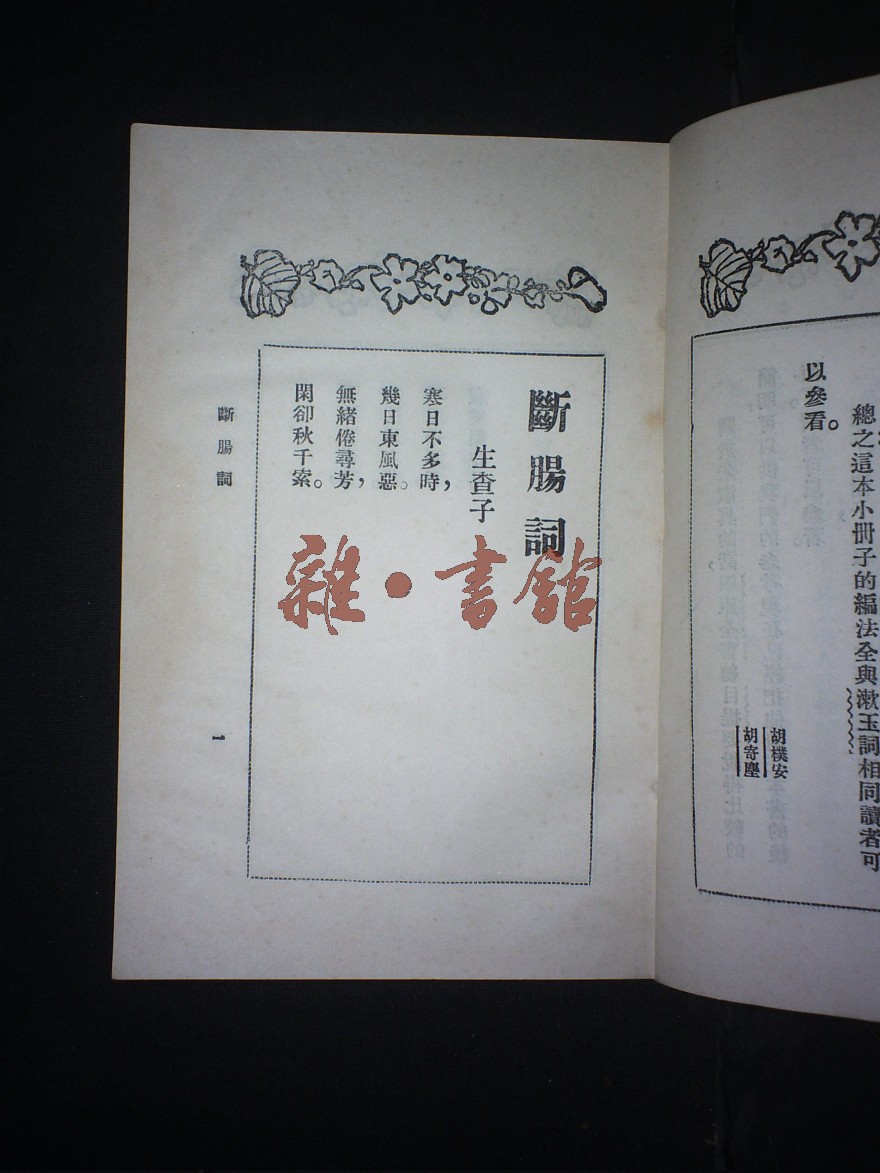 總之這本小冊子的編法全與漱玉詞相同讀者可
以參看。
胡樸安
胡寄塵
斷腸詞
生査子
寒日不多時，
幾日東風惡。
無緒倦尋芳，
閑卻秋千索。
斷腸詞
1
雜·書館